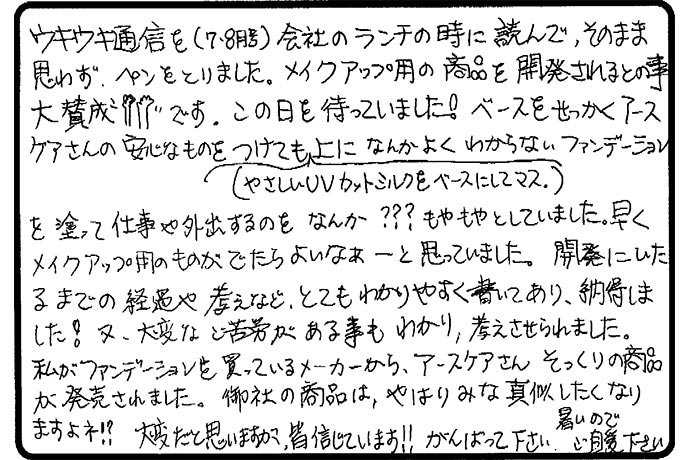 ウキウキ通信を(7・8月号)会社のランチの時に読んで、そのまま
思わず、ペンをとりました。メイクアップ用の商品を開発されるとの事
大賛成です。この日を待っていました! ベースをせっかくアース
ケアさんの安心なものをつけても上になんかよくわからないファンデーション
(やさしいUVカットミルクをベースにしてマス。)
を塗って仕事や外出するのをなんか???もやもやとしていました。早く
メイクアップ用のものがでたらよいなぁーと思っていました。開発にいた
るまでの経過や考えなど、とてもわかりやすく書いてあり、納得しま
した! 又、大変なご苦労がある事もわかり、考えさせられました。
私がファンデーションを買っているメーカーから、アースケアさんそっくりの商品
が発売されました。御社の商品は、やはりみな真似したくなり
ますよネ!? 大変だと思いますが、皆信じています!! がんばって下さい。
暑いので
ご自愛下さい